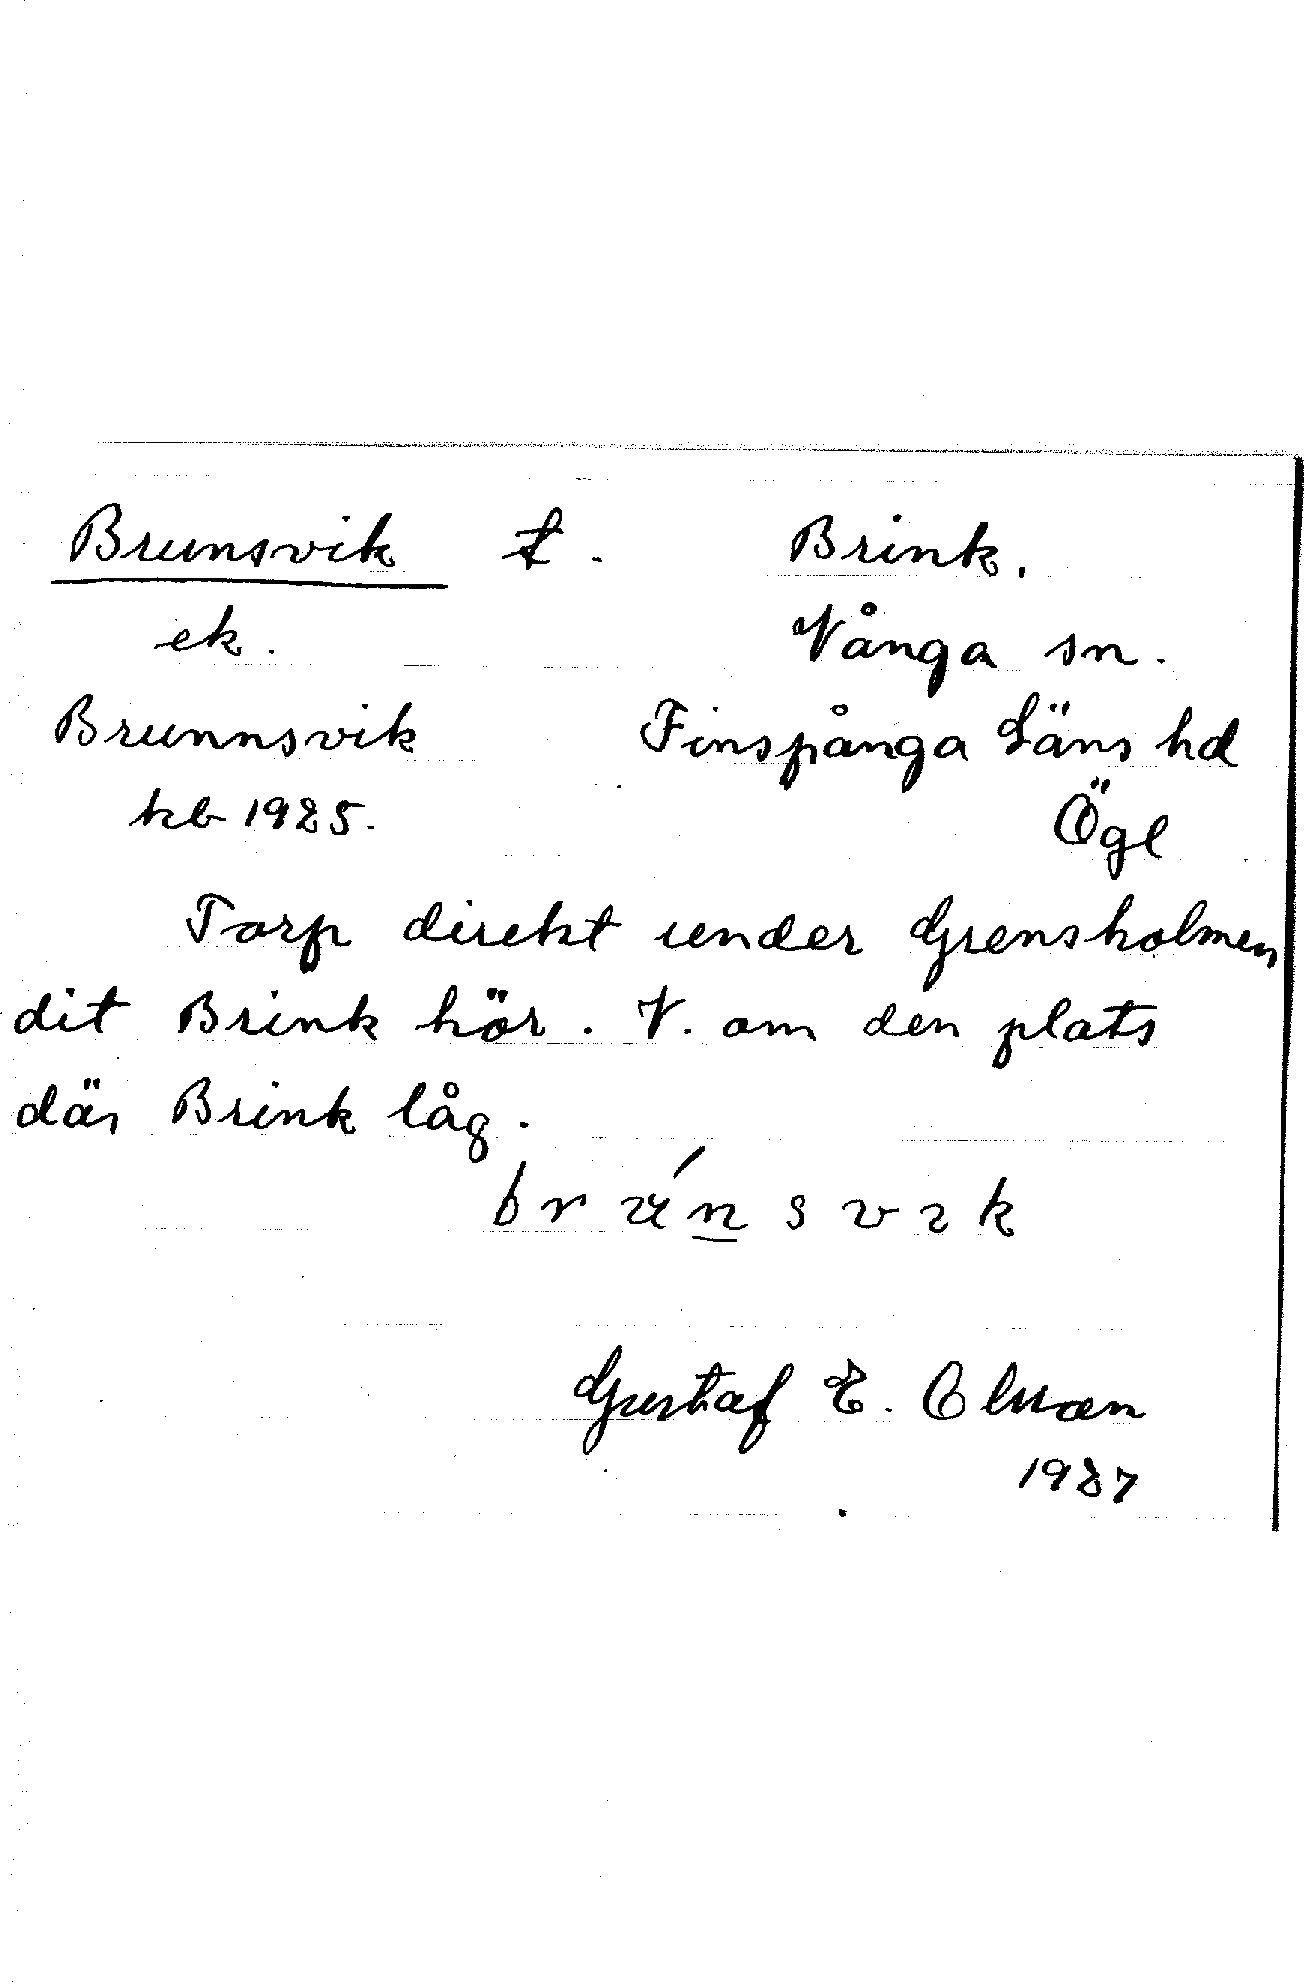 Brunsvik t. Brink.
ek. Vånga sn.
Brunnsvik Finspånga Läns hd
kb 1925. Ögl
Torp direkt under Grensholmen
dit Brink hör. V. om den plats
där Brink låg.
Gustaf E.